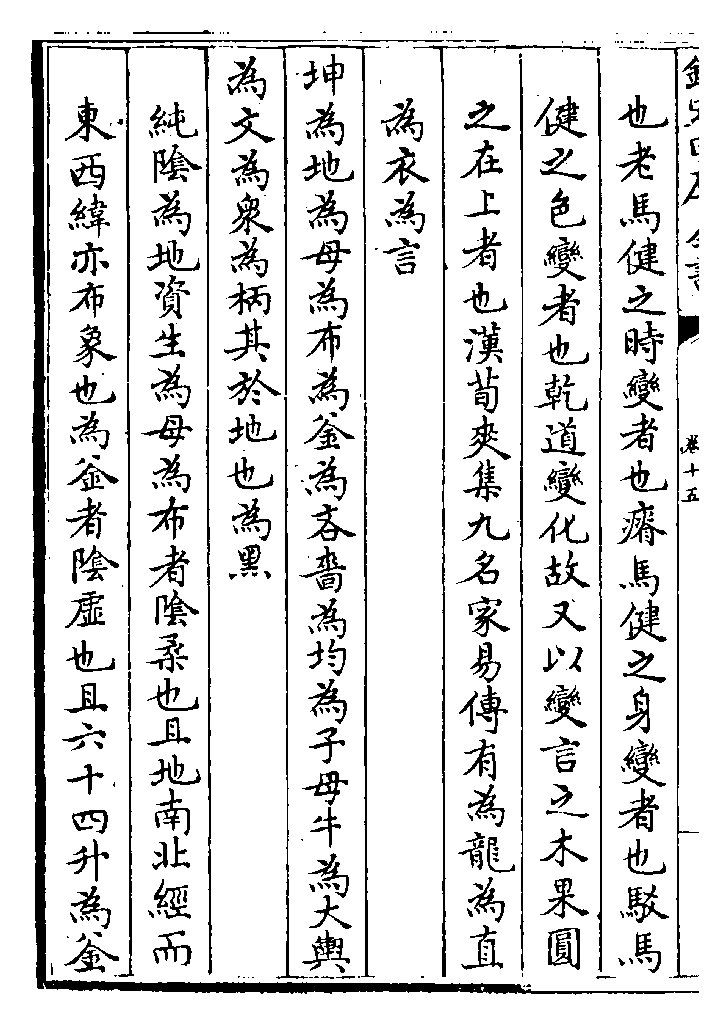 欽定四庫全書 卷十五
也老馬健之時變者也瘠馬健之身變者也駁馬
健之色變者也乾道變化故又以變言之木果圓
之在上者也漢荀爽集九名家易傳有為龍為直
為衣為言
坤為地為母為布為釜為吝嗇為均為子母牛為大輿
為文為衆為柄其於地也為黑
純陰為地資生為母為布者陰柔也且地南北經而
東西緯亦布象也為釜者陰虛也且六十四升為釜